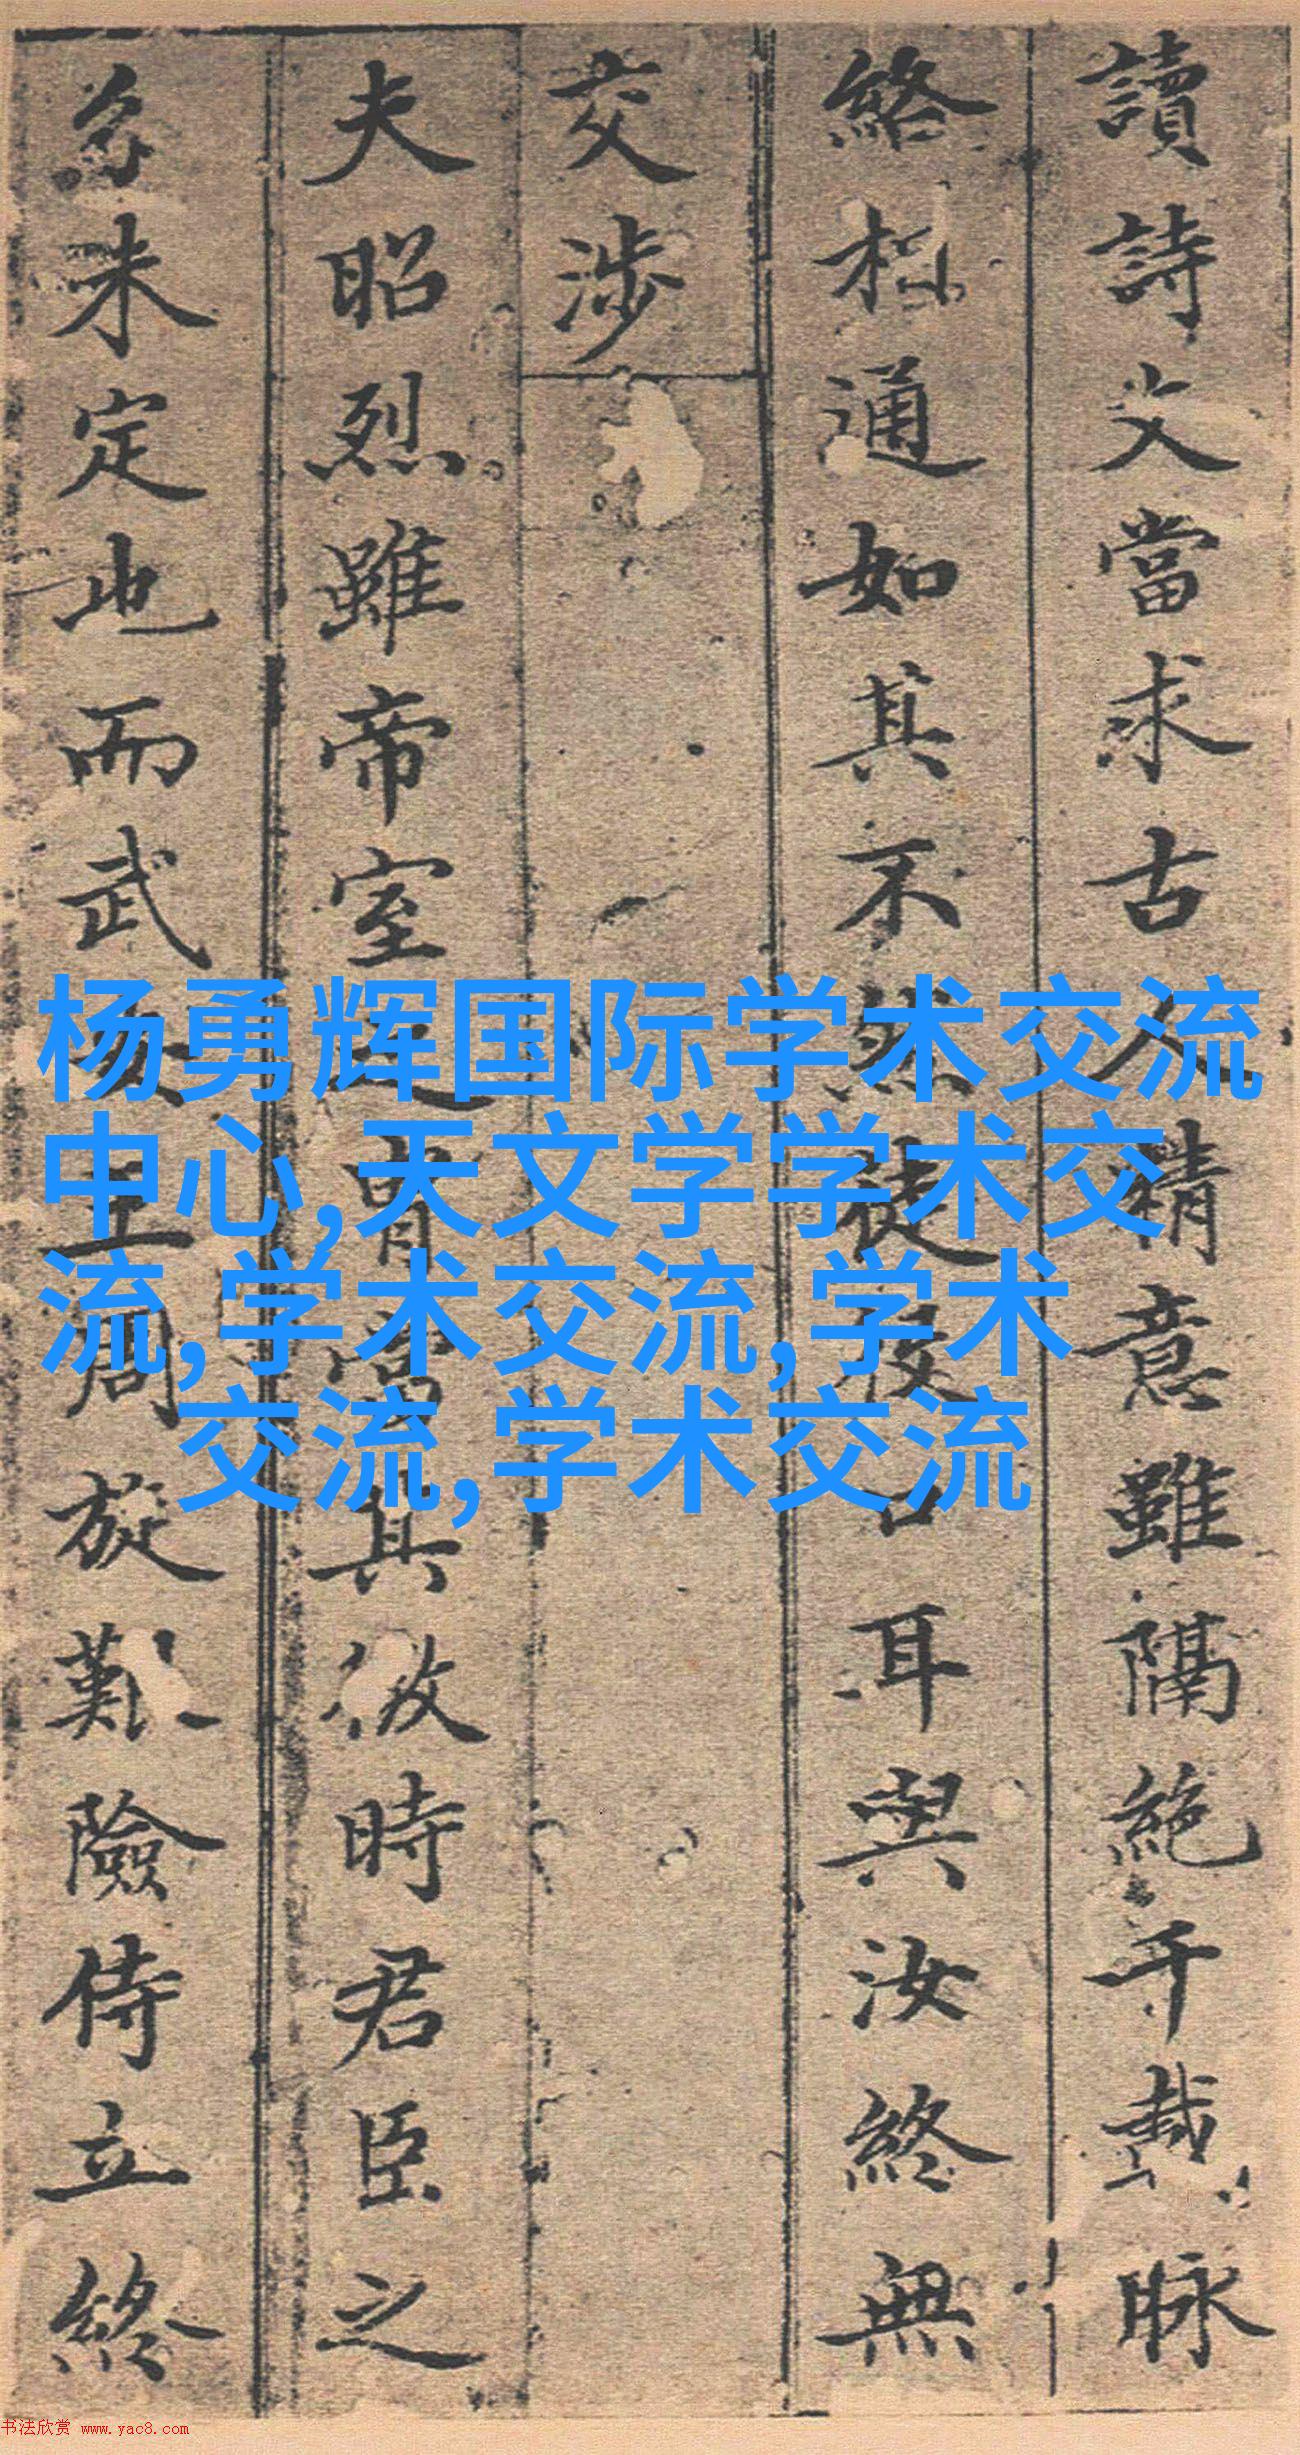 讀詩文當求古人精意雖隔絶千載脉
絡相通如其不然徒役口耳與汝終無
交涉
夫昭烈雖帝室之胄當其微時君臣之
名未定也而武
周旋艱險侍立終
杨勇辉国际学术交流
中心,天文学学术交
流,学术交流,学术
交流,学术交流
书法欣赏 www.yac8.com